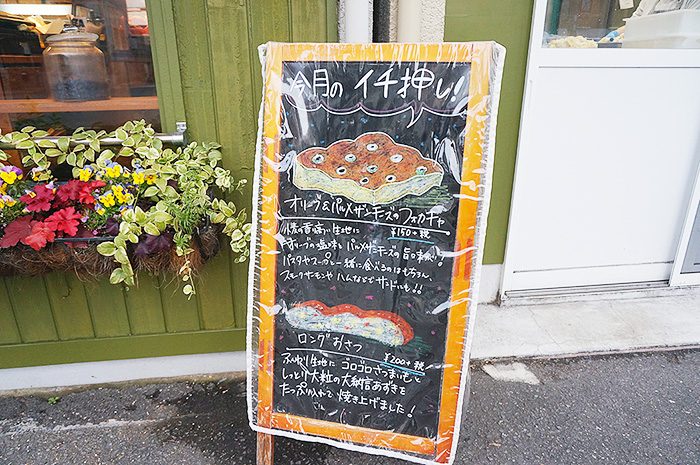 今月の イチ押し!
オリーブ&パルメザンチーズのフォカチャ
¥150+税
小麦の香り高い生地に
オリーブの塩味と パルメザンチーズの旨味を!
パスタやスープと一緒に食べるのはもちろん、
スモークサーモンや ハムなどでサンドにも!!
ロングおさつ
¥200+税
ふんわり生地に ゴロゴロさつまいもと
しっとり大粒の大納言あずきを
たっぷり入れて 焼き上げました!